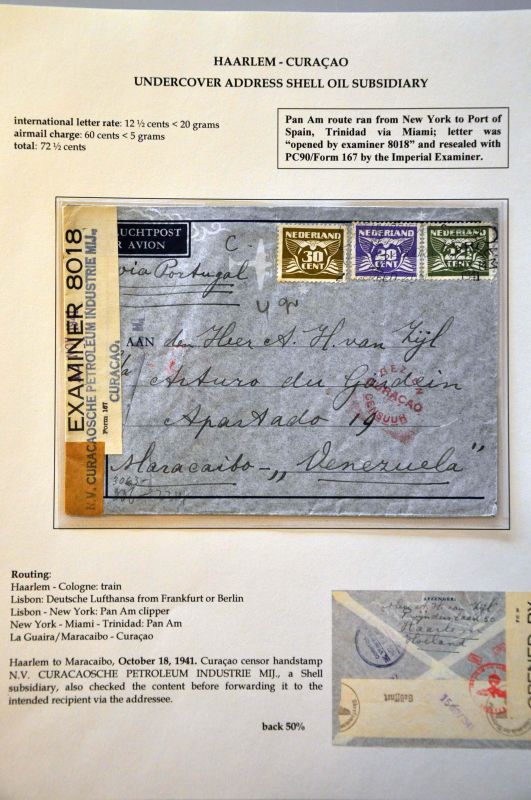 HAARLEM - CURAÇAO
UNDERCOVER ADDRESS SHELL OIL SUBSIDIARY
international letter rate: 12 ½ cents < 20 grams
airmail charge: 60 cents < 5 grams
total: 72 ½ cents
Pan Am route ran from New York to Port of
Spain, Trinidad via Miami; letter was
"opened by examiner 8018" and resealed with
PC90/Form 167 by the Imperial Examiner.
LUCHTPOST
AR AVION
C.
via Portugal
NEDERLAND
30
CENT
NEDERLAND
20
CENT
NEDERLAND
CENT
EXAMINER 8018
N.V. CURACAOSCHE PETROLEUM INDUSTRIE MIJ.
CURAÇAO,
Form 167
AAN den Heer A. H. van Zijl
Arturo du Gardein
Apartado 19
Maracaibo - "Venezuela"
CURAÇAO
CENSUUR
Routing:
Haarlem - Cologne: train
Lisbon: Deutsche Lufthansa from Frankfurt or Berlin
Lisbon - New York: Pan Am clipper
New York - Miami - Trinidad: Pan Am
La Guaira/Maracaibo - Curaçao
Haarlem to Maracaibo, October 18, 1941. Curaçao censor handstamp
N.V. CURACAOSCHE PETROLEUM INDUSTRIE MIJ., a Shell
subsidiary, also checked the content before forwarding it to the
intended recipient via the addressee.
back 50%
AFZENDER:
van Zijl
Haarlem
Holland
Geöffnet